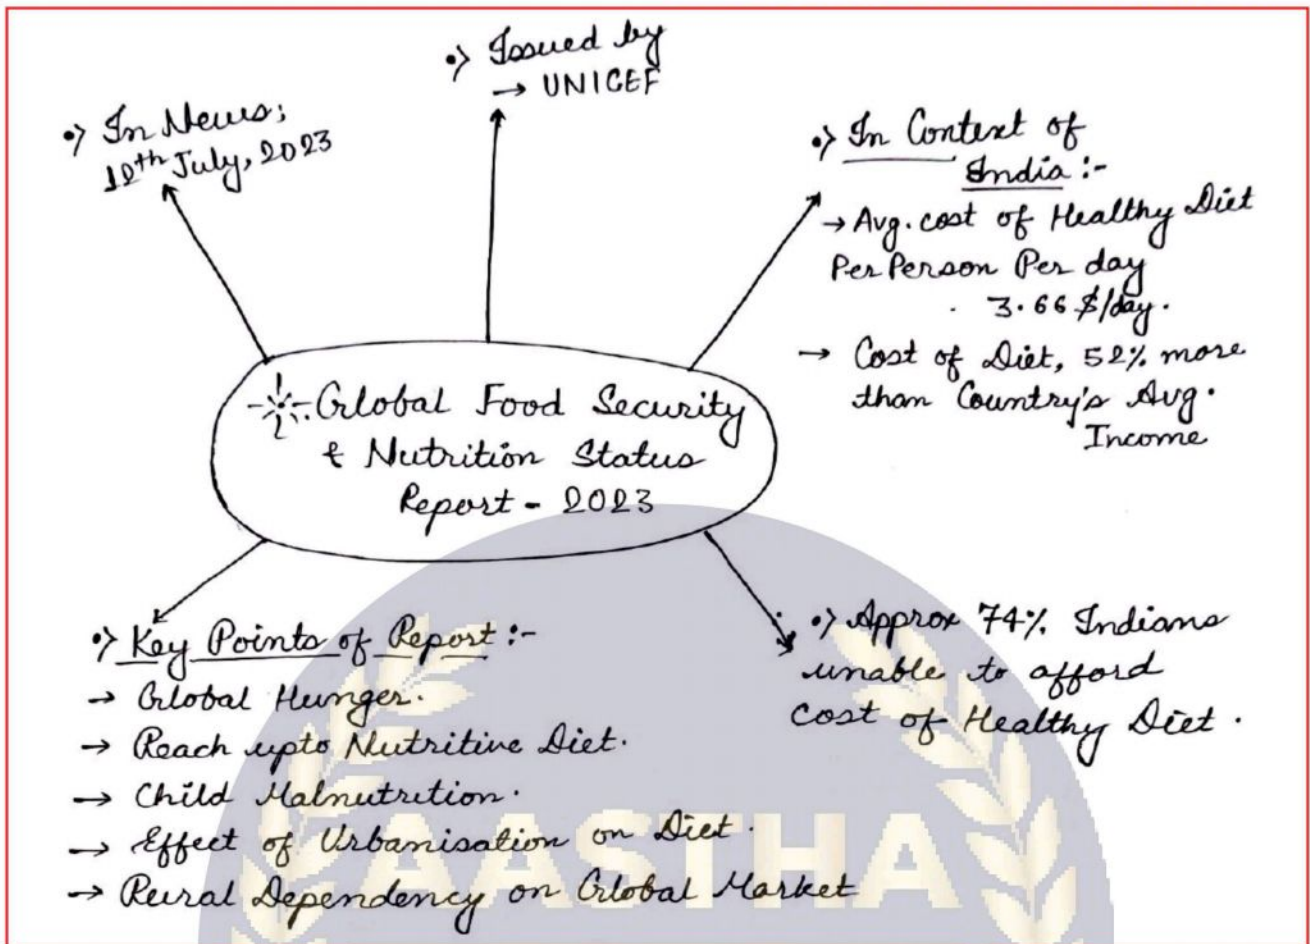 •> Issued by
→ UNICEF
•> In News:
12th July, 2023
•> In Context of
India :-
→ Avg. cost of Healthy Diet
Per Person Per day
3.66 $/day.
→ Cost of Diet, 52% more
than Country's Avg.
Income
Global Food Security
& Nutrition Status
Report - 2023
•> Key Points of Report :-
→ Global Hunger.
→ Reach upto Nutritive Diet.
→ Child Malnutrition.
→ Effect of Urbanisation on Diet.
→ Rural Dependency on Global Market
•> Approx 74% Indians
unable to afford
cost of Healthy Diet.
AASTHA